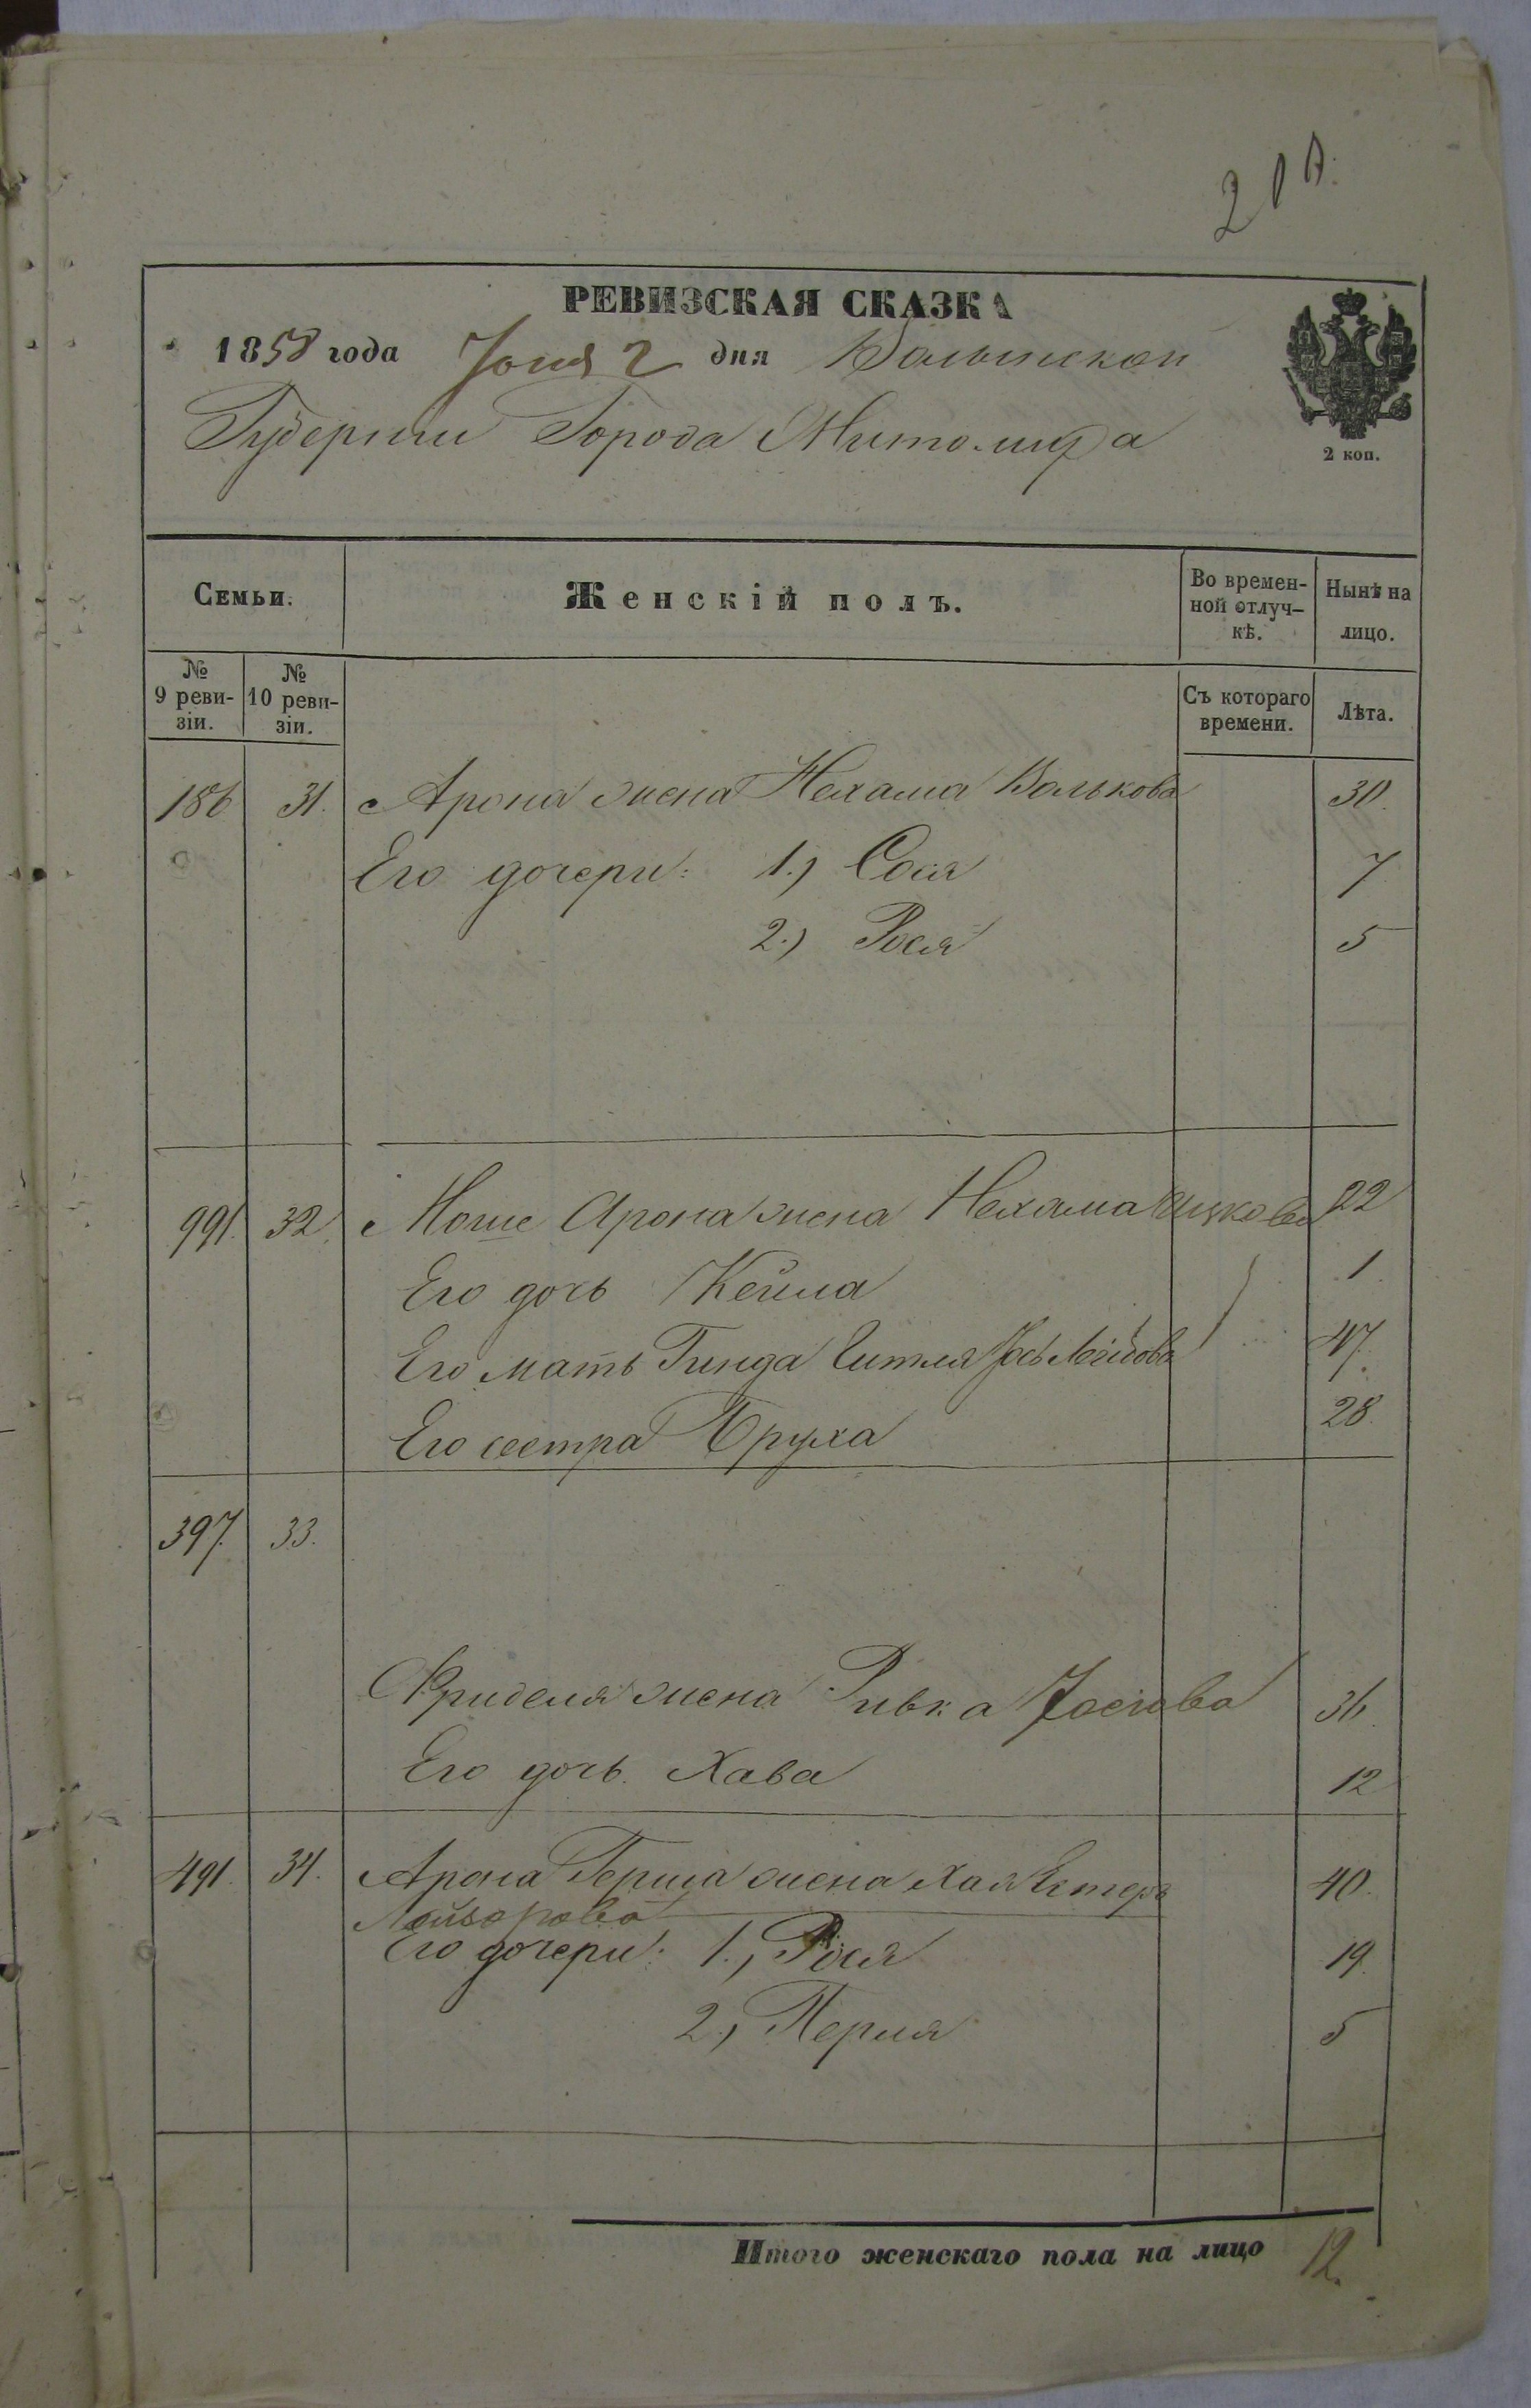 210.
РЕВИЗСКАЯ СКАЗКА
1858 года Іюня 2 дня Волынской
Губерніи Города Житомира
2 коп.
Семьи.
Женскій полъ.
Во времен-
ной отлуч-
кѣ.
Нынѣ на
лицо.
№
9 реви-
зіи.
№
10 реви-
зіи.
Съ котораго
времени.
Лѣта.
186 31. Арона жена Нехама Волькова 30.
Его дочери: 1.) Сося 7
2.) Рося 5
991. 32. Моше Арона жена Нехама Ицкова 22
Его дочь Кейла 1.
Его мать Гинда Ситля Лейбова 47.
Его сестра Бруха 28.
397. 33.
Фриделя жена Ривка Іосіова 36.
Его дочь Хава 12
491. 34. Арона Герша жена Хая Естеръ 40.
Лейзорова
Его дочери: 1., Рося 19.
2., Перля 5
Итого женскаго пола на лицо 12.